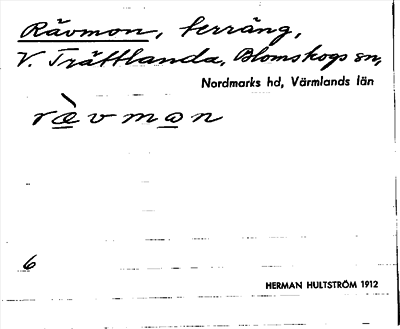 Rävmon, terräng,
V. Trättlanda, Blomskogs sn,
Nordmarks hd, Värmlands län
ræ̀vmωn
6
HERMAN HULTSTRÖM 1912